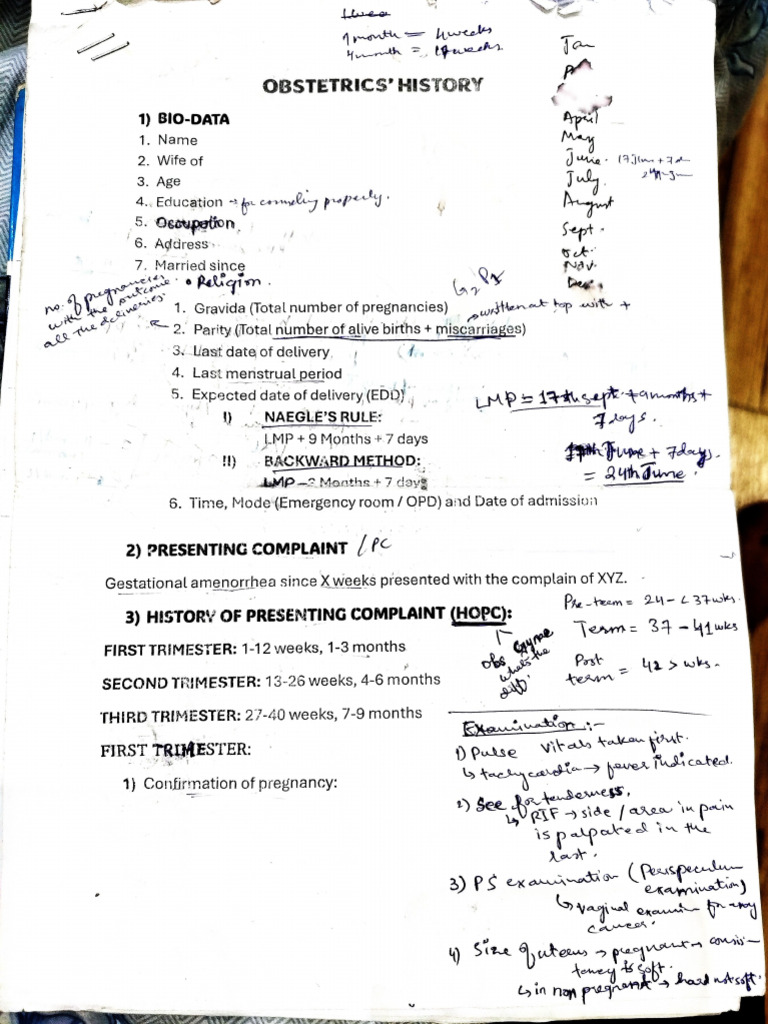 1 month = 4 weeks
4 month = 17 weeks.
Jan
April
May
June. 17 June + 7 d
July.
August
Sept.
Oct.
Nov.
Dec.
OBSTETRICS' HISTORY
1) BIO-DATA
1. Name
2. Wife of
3. Age
4. Education → for counseling properly.
5. Occupation
6. Address
7. Married since
• Religion.
no. of pregnancies
with the outcome
all the deliveries.
G2 P1
1. Gravida (Total number of pregnancies)
written at top with +
2. Parity (Total number of alive births + miscarriages)
3. Last date of delivery
4. Last menstrual period
5. Expected date of delivery (EDD)
I) NAEGLE'S RULE:
LMP + 9 Months + 7 days
II) BACKWARD METHOD:
LMP – 3 Months + 7 days
LMP = 17th sept + 9 months +
7 days.
17th June + 7 days.
= 24th June.
6. Time, Mode (Emergency room / OPD) and Date of admission
2) PRESENTING COMPLAINT / PC
Gestational amenorrhea since X weeks presented with the complain of XYZ.
3) HISTORY OF PRESENTING COMPLAINT (HOPC):
obs Gynae
whats the
diff.
Pre-term = 24 - < 37 wks.
Term = 37 - 41 wks
Post
term = 42 > wks.
FIRST TRIMESTER: 1-12 weeks, 1-3 months
SECOND TRIMESTER: 13-26 weeks, 4-6 months
THIRD TRIMESTER: 27-40 weeks, 7-9 months
FIRST TRIMESTER:
1) Confirmation of pregnancy:
Examination :-
1) Pulse Vitals taken first.
↳ tachycardia → fever indicated.
2) See for tenderness.
↳ RIF → side / area in pain
is palpated in the
last.
3) PS examination (Perspeculum
examination)
↳ vaginal examin for any
cancer.
4) Size of uterus → pregnant → consis-
tency is soft.
↳ in non pregnant → hard not soft.